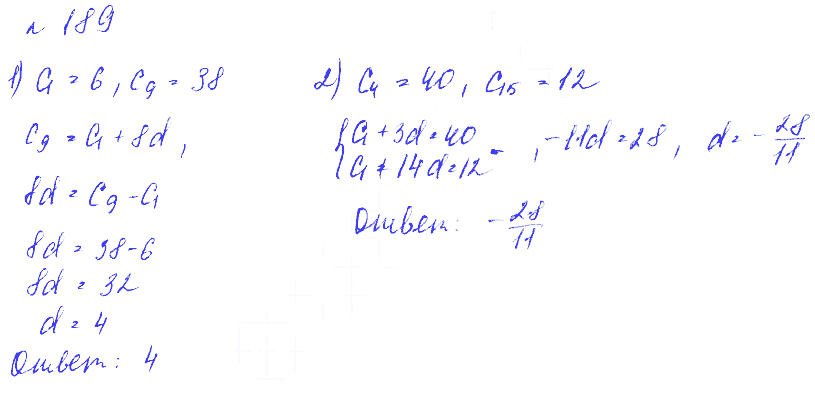 н 189
1) C₁ = 6, C₉ = 38
C₉ = C₁ + 8d,
8d = C₉ - C₁
8d = 38 - 6
8d = 32
d = 4
Ответ: 4
2) C₄ = 40, C₁₅ = 12
{C₁ + 3d = 40
{C₁ + 14d = 12 - , -11d = 28, d = -28/11
Ответ: -28/11